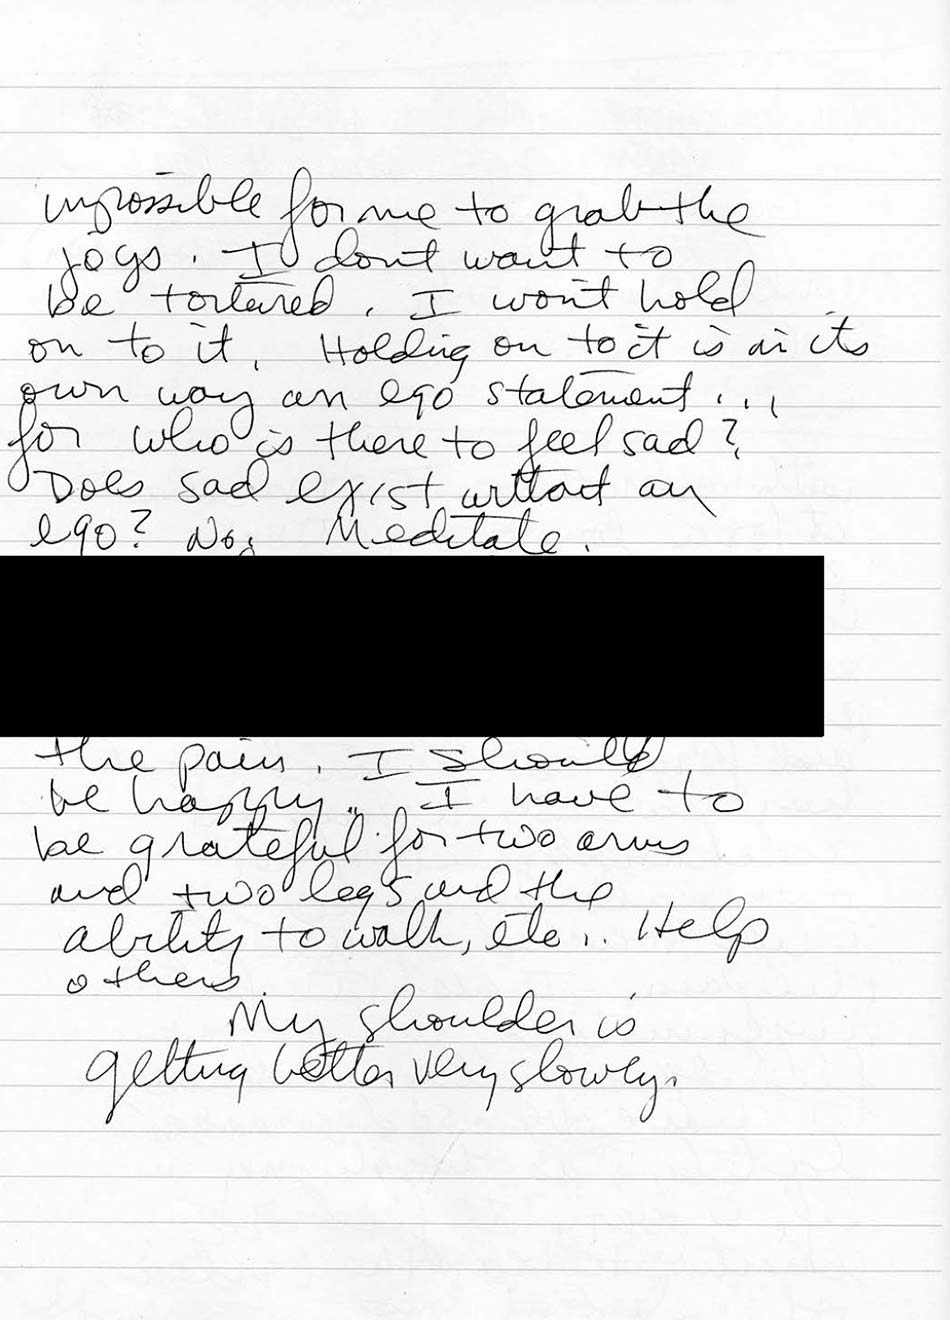 impossible for me to grab the
joys. I don't want to
be tortured. I won't hold
on to it. Holding on to it is in its
own way an ego statement...
for who is there to feel sad?
Does sad exist without an
ego? No. Meditate.
the pain. I should
be happy. I have to
be grateful for two arms
and two legs and the
ability to walk, etc... Help
others.
My shoulder is
getting better very slowly.